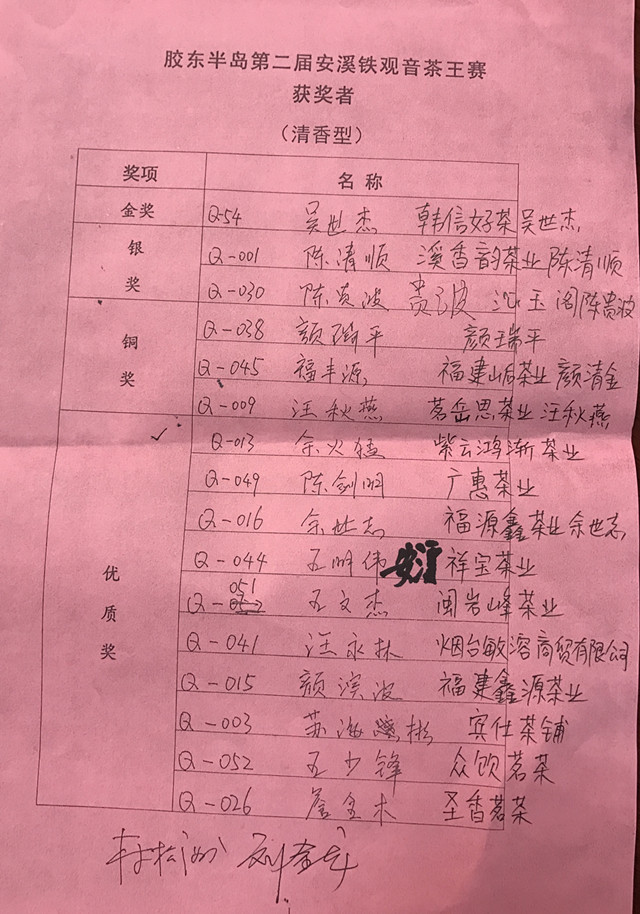 胶东半岛第二届安溪铁观音茶王赛
获奖者
（清香型）
奖项 名称
金奖 Q-54 吴世杰 韩信好茶吴世杰
银奖 Q-001 陈清顺 溪香韵茶业陈清顺
Q-030 陈贵波 贵波 沁玉阁陈贵波
铜奖 Q-038 颜瑞平 颜瑞平
Q-045 福丰源 福建山后茶业颜清金
Q-009 汪秋燕 茗岳思茶业汪秋燕
优质奖 Q-013 余火猛 紫云鸿渐茶业
Q-049 陈剑明 广惠茶业
Q-016 余世志 福源鑫茶业余世志
Q-044 王明伟 祥宝茶业
Q-051 王文杰 闽岩峰茶业
Q-041 汪永林 烟台敏溶商贸有限公司
Q-015 颜滨波 福建鑫源茶业
Q-003 苏海彬 宾仕茶铺
Q-052 王少锋 众饮茗茶
Q-026 詹金木 圣香茗茶